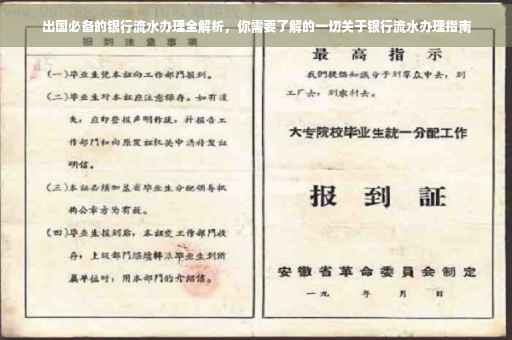 出国必备的银行流水办理全解析，你需要了解的一切关于银行流水办理指南
报到注意事项
(一)毕业生凭本证向工作部门报到。
(二)毕业生对本证应注意保存。如有遗
失，应即登报声明作废，并报告工
作部门和向原发证机关申请补发证
明信。
(三)本证必须加盖省毕业生分配领导机
构公章方为有效。
(四)毕业生报到后，本证交工作部门收
存；上级部门继续转派毕业生到所
属单位时，用本部门的介绍信。
最高指示
我们提倡知识分子到羣众中去，到
工厂去，到农村去。
大专院校毕业生统一分配工作
报到证
安徽省革命委员会制定
一九 年 月 日